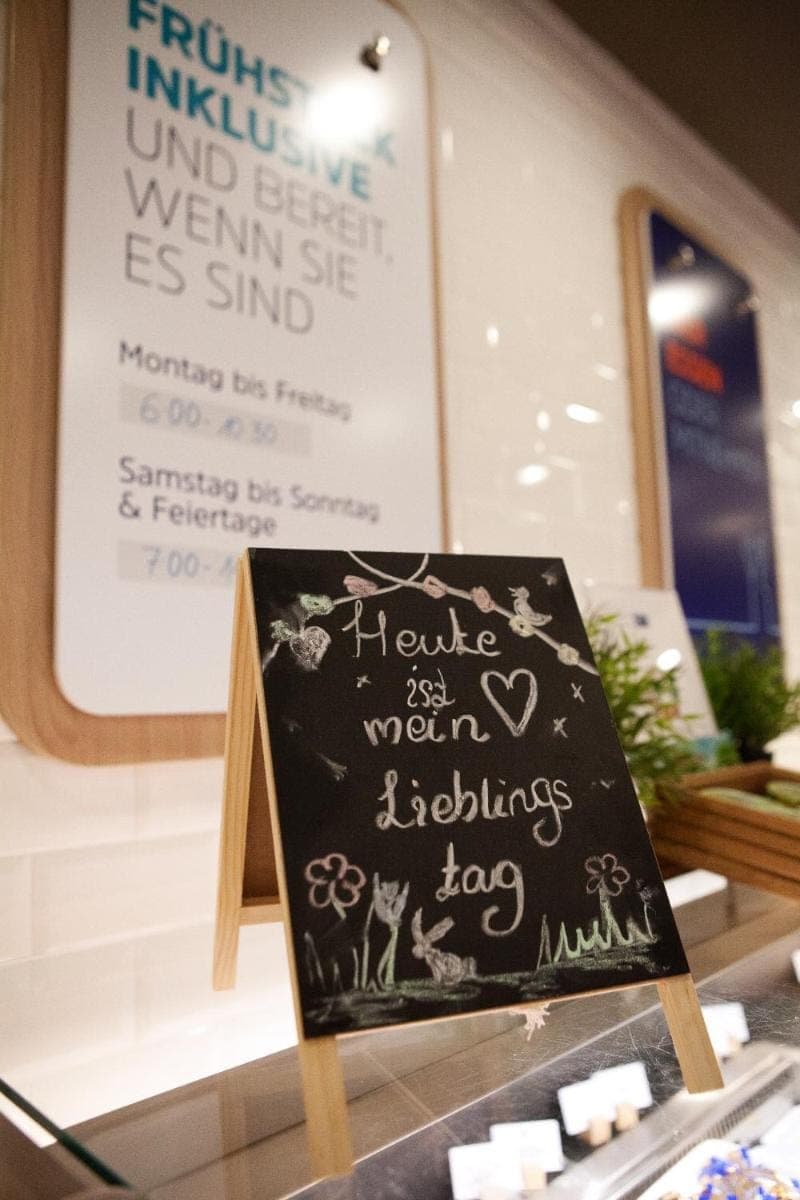 FRÜHSTÜCK
INKLUSIVE
UND BEREIT,
WENN SIE
ES SIND
Montag bis Freitag
6:00-10:30
Samstag bis Sonntag
& Feiertage
7:00-
Heute
ist
mein
Lieblings
tag